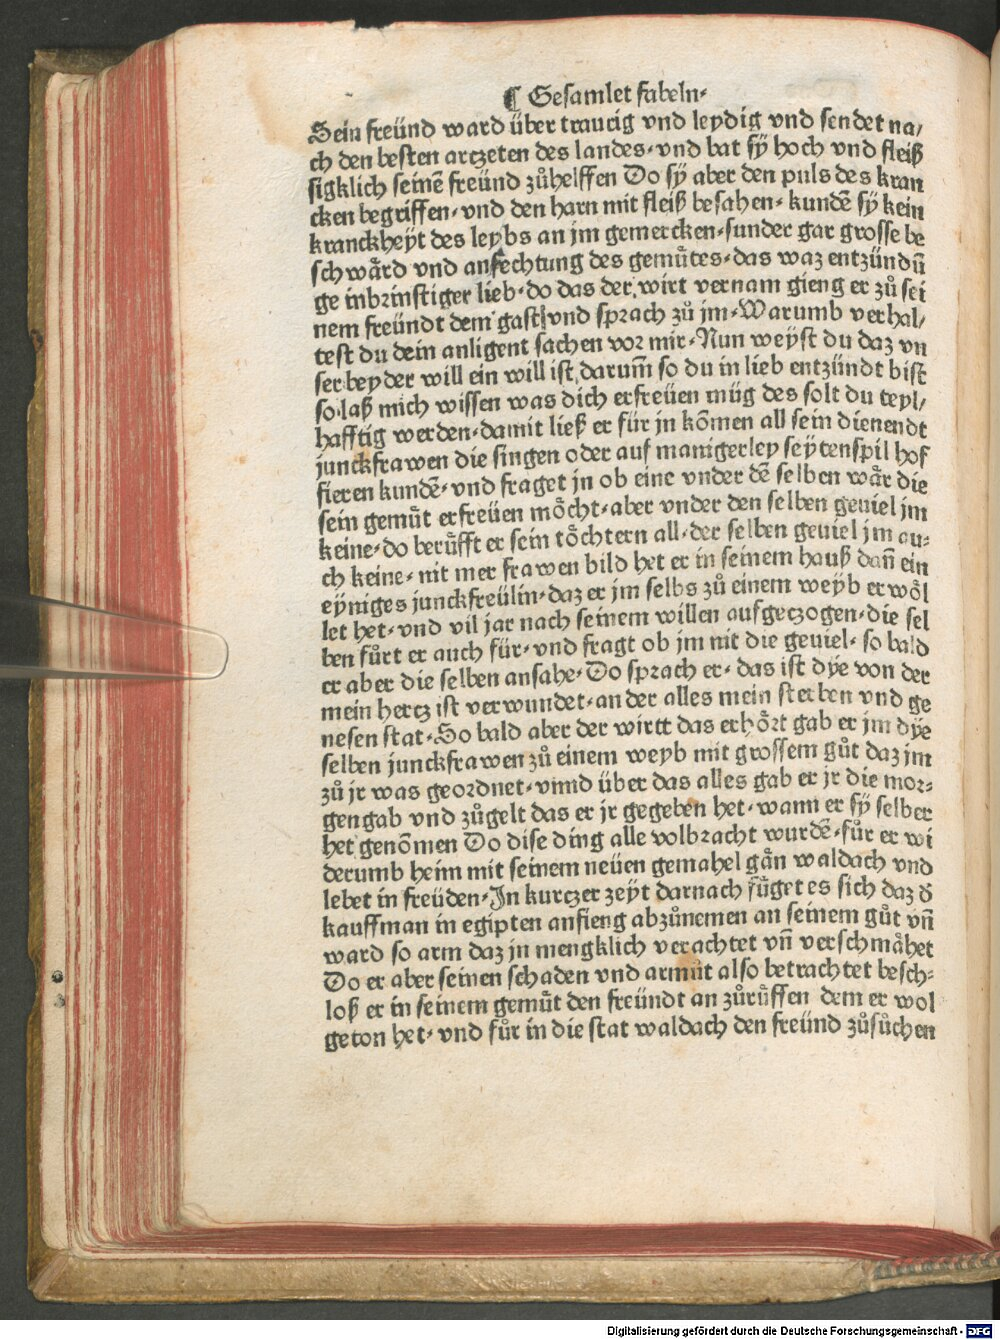 ¶ Gesamlet fabeln·
Sein freünd ward über traurig vnd leydig vnd sendet na/
ch den besten arczeten des landes· vnd bat sÿ hoch vnd fleiß
sigklich seinē freünd zůhelffen Do sÿ aber den puls des kran
cken begriffen· vnd den harn mit fleiß besahen· kundē sÿ kein
kranckheÿt des leybs an jm gemercken· sunder gar grosse be
schwård vnd anfechtung des gemůtes· das waz entzündū
ge inbrinstiger lieb· do das der wirt vernam gieng er zů sei
nem freündt dem gast vnd sprach zů jm· Warumb verhal/
test du dein anligent sachen vor mir· Nun weyst du daz vn
ser beyder will ein will ist darum̄ so du in lieb entzündt bist
so laß mich wissen was dich erfreüen müg des solt du teyl/
hafftig werden· damit ließ er für jn kōmen all sein dienendt
junckfrawen die singen oder auf manigerley seÿtenspil hof
fieren kundē· vnd fraget jn ob eine vnder dē selben wår die
sein gemůt erfreüen mőcht· aber vnder den selben geuiel jm
keine· do berůfft er sein tőchtern all· der selben geuiel jm au⸗
ch keine· nit mer frawen bild het er in seinem hauß dan̄ ein
eyniges junckfreülin· daz er jm selbs zů einem weyb erwől
let het· vnd vil jar nach seinem willen aufgeczogen· die sel
ben fůrt er auch für· vnd fragt ob jm nit die geuiel· so bald
er aber die selben ansahe· Do sprach er· das ist dÿe von der
mein hercz ist verwundet· an der alles mein sterben vnd ge
nesen stat· So bald aber der wirtt das erhőrt gab er jm dÿe
selben junckfrawen zů einem weyb mit grossem gůt daz jm
zů jr was geordnet· vnnd über das alles gab er jr die mor⸗
gengab vnd zůgelt das er jr gegeben het· wann er sÿ selber
het genōmen Do dise ding alle volbracht wurdē· fůr er wi
derumb heim mit seinem neüen gemahel gån waldach vnd
lebet in freüden· In kurczer zeÿt darnach fůget es sich daz ď
kauffman in egipten anfieng abzůnemen an seinem gůt vn̄
ward so arm daz jn mengklich verachtet vn̄ verschmåhet
Do er aber seinen schaden vnd armůt also betrachtet besch⸗
loß er in seinem gemůt den freündt an zůrůffen dem er wol
geton het· vnd fůr in die stat waldach den freünd zůsůchen
Digitalisierung gefördert durch die Deutsche Forschungsgemeinschaft - DFG